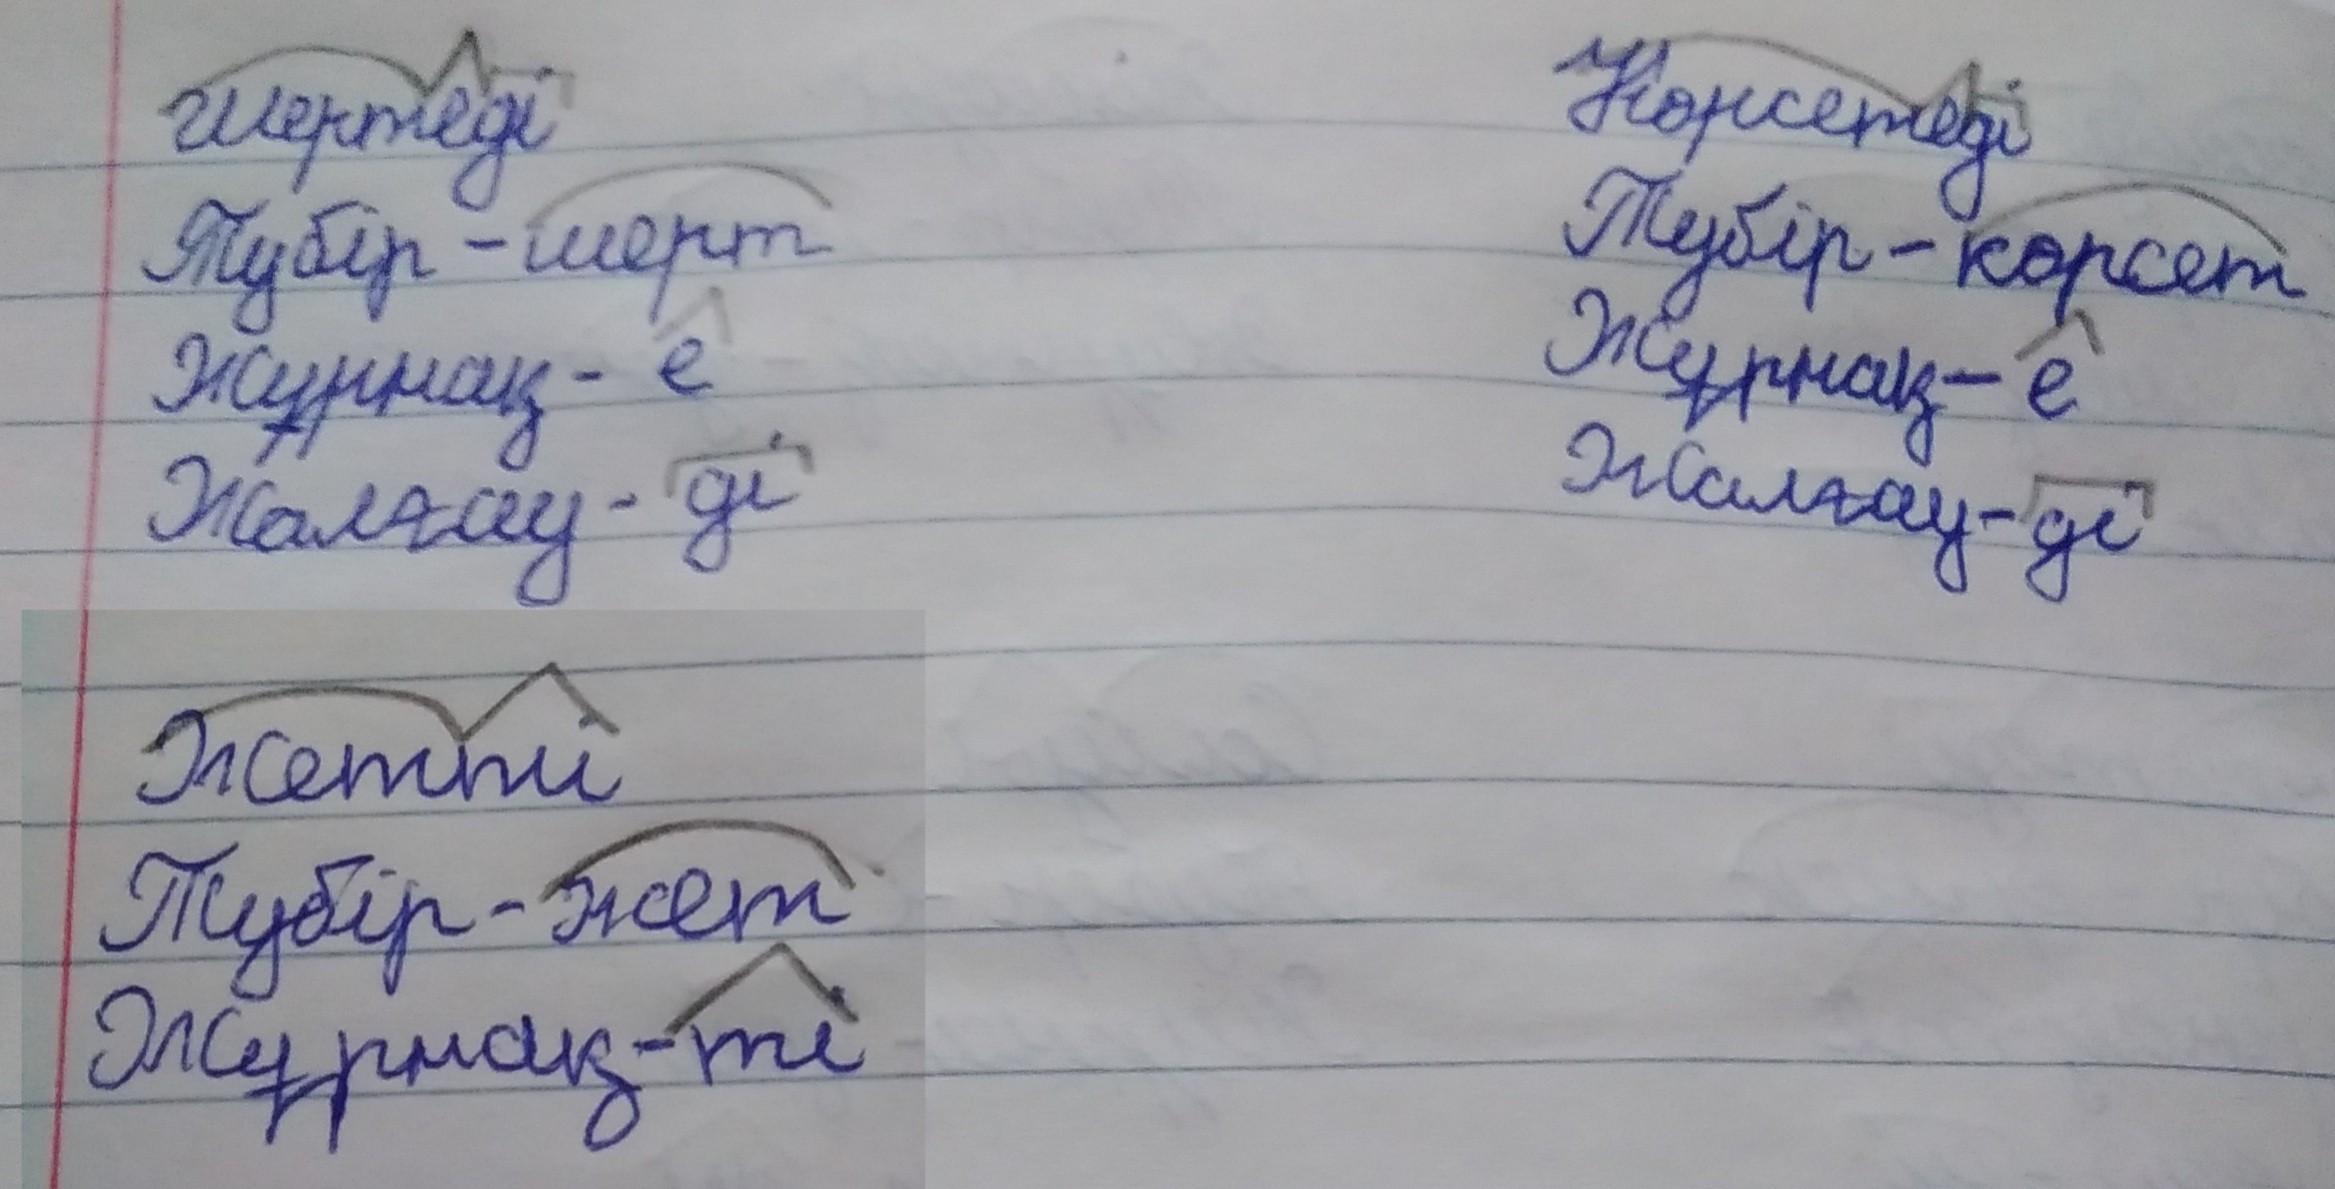 шертеді
Түбір - шерт
Жұрнақ - е
Жалғау - ді
Көрсетеді
Түбір - көрсет
Жұрнақ - е
Жалғау - ді
Жетті
Түбір - жет
Жұрнақ - ті